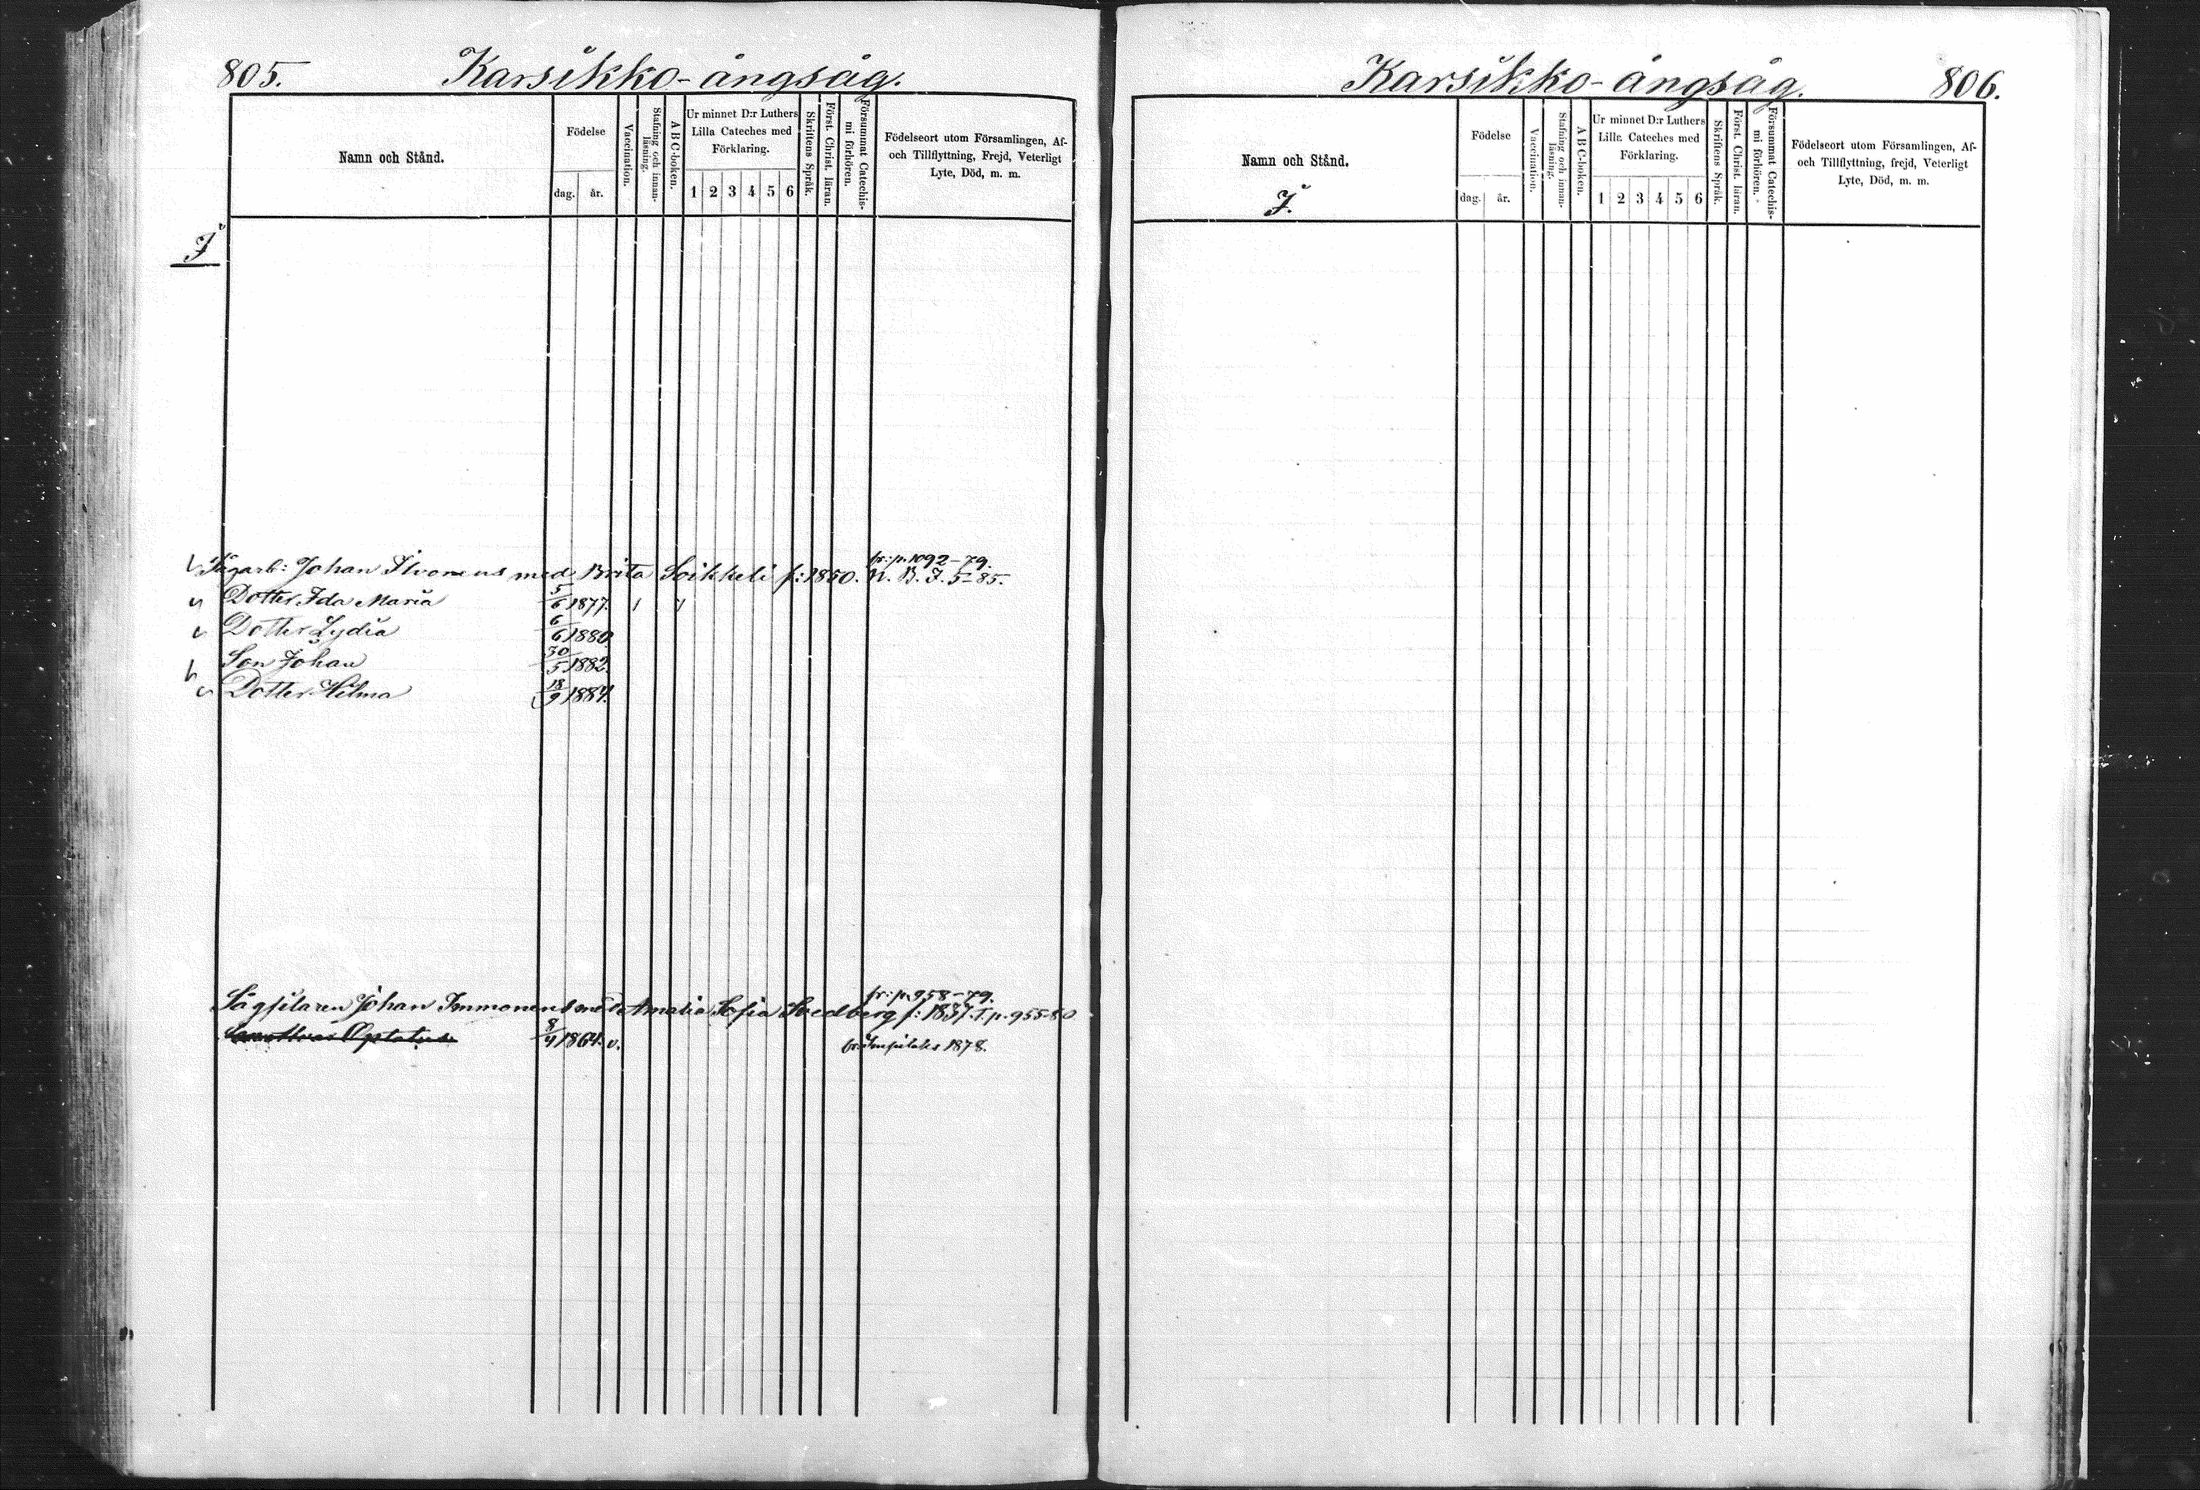 805. Karsikko-ångsåg.
Namn och Stånd.
Födelse
dag. år.
Vaccination.
Stafning och innan-läsning.
ABC-boken.
Ur minnet D:r Luthers
Lilla Cateches med
Förklaring.
1 2 3 4 5 6
Skriftens Språk.
Först. Christ. läran.
Försummat Catechis-mi förhören.
Födelseort utom Församlingen, Af-
och Tillflyttning, Frejd, Veterligt
Lyte, Död, m. m.
J.
fr: p. 1092-79.
Sågarb: Johan Ilvonens med Brita Soikkeli f: 1850. N. B. J. 5-85.
Dotter Ida Maria 5/6 1877.
Dotter Lydia 6/6 1880.
Son Johan 30/5 1882.
Dotter Hilma 18/9 1884.
fr: p. 958-79.
Sågfilaren Johan Immonens med Amalia Sofia Svedberg f: 1837. T. p. 955-80
8/4 1864. v. fr. Impilaks 1878.
Karsikko-ångsåg. 806.
Namn och Stånd.
J.
Födelse
dag. år.
Vaccination.
Stafning och innan-läsning.
ABC-boken.
Ur minnet D:r Luthers
Lilla Cateches med
Förklaring.
1 2 3 4 5 6
Skriftens Språk.
Först. Christ. läran.
Försummat Catechis-mi förhören.
Födelseort utom Församlingen, Af-
och Tillflyttning, frejd, Veterligt
Lyte, Död, m. m.